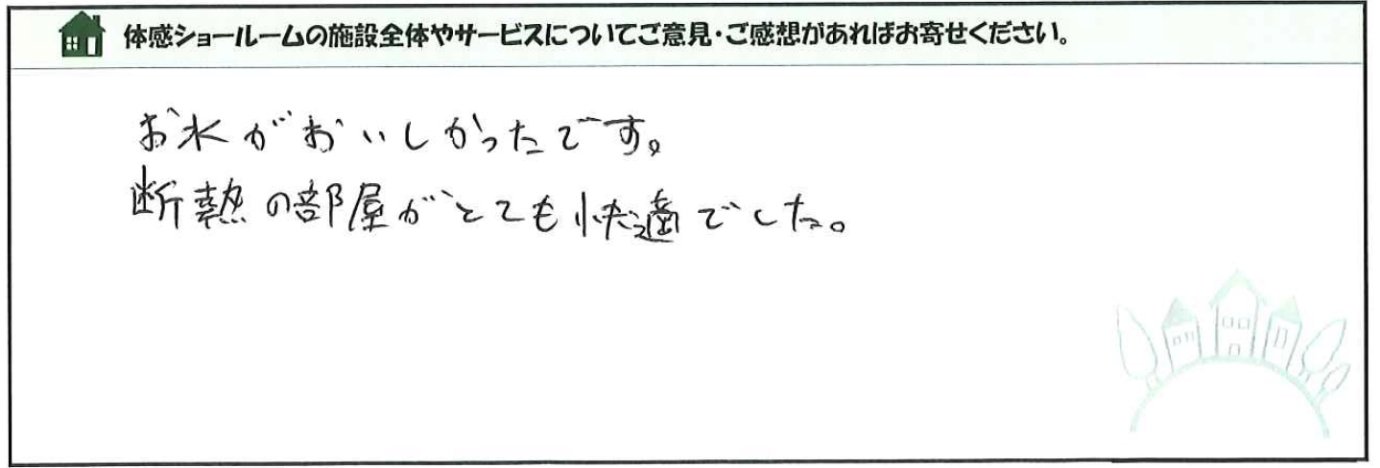 体感ショールームの施設全体やサービスについてご意見・ご感想があればお寄せください。
お水がおいしかったです。
断熱の部屋がとても快適でした。